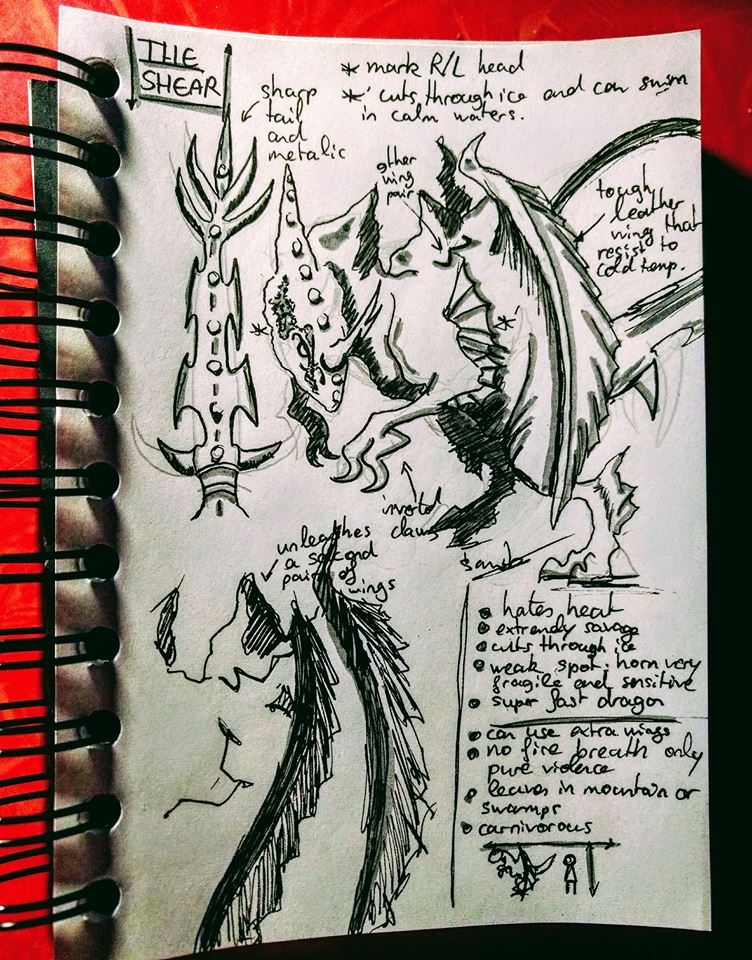 THE
SHEAR
* mark R/L head
* cuts through ice and can swim
in calm waters.
sharp
tail
and
metalic
other
wing
pair
tough
leather
wing that
resist to
cold temp.
claws
unleashes
a second
pair of
wings
hates heat
extremely savage
cutts through ice
weak spot: horn very
fragile and sensitive
super fast dragon
can use extra wings
no fire breath only
pure violence
leaves in mountain or
swamps
carnivorous